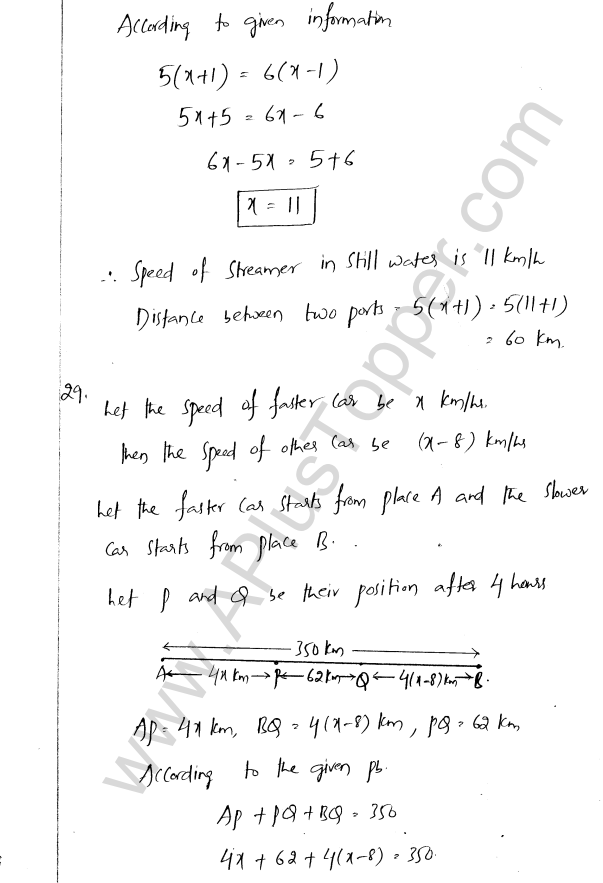 According to given information
5(x+1) = 6(x-1)
5x+5 = 6x-6
6x-5x = 5+6
x = 11
∴ Speed of Streamer in still water is 11 km/h
Distance between two ports = 5(x+1) = 5(11+1)
= 60 km.
29.
Let the speed of faster car be x km/hr.
then the speed of other car be (x-8) km/hr
Let the faster car starts from place A and the slower
car starts from place B.
Let P and Q be their position after 4 hours
350 km
A 4x km P 62 km Q 4(x-8) km B.
AP = 4x km, BQ = 4(x-8) km, PQ = 62 km
According to the given pb.
AP + PQ + BQ = 350
4x + 62 + 4(x-8) = 350.
www.APlusTopper.com